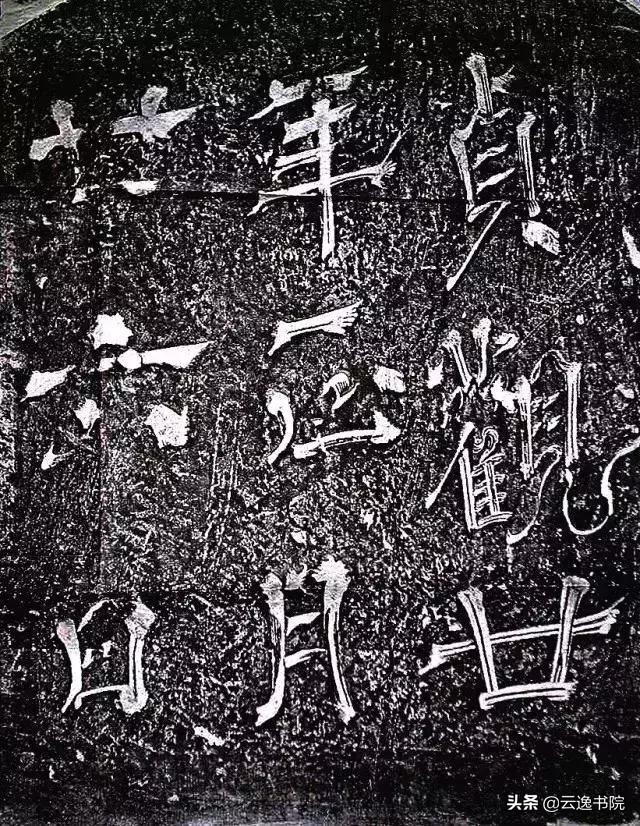 貞觀廿
年正月
廿六日
头条 @云逸书院